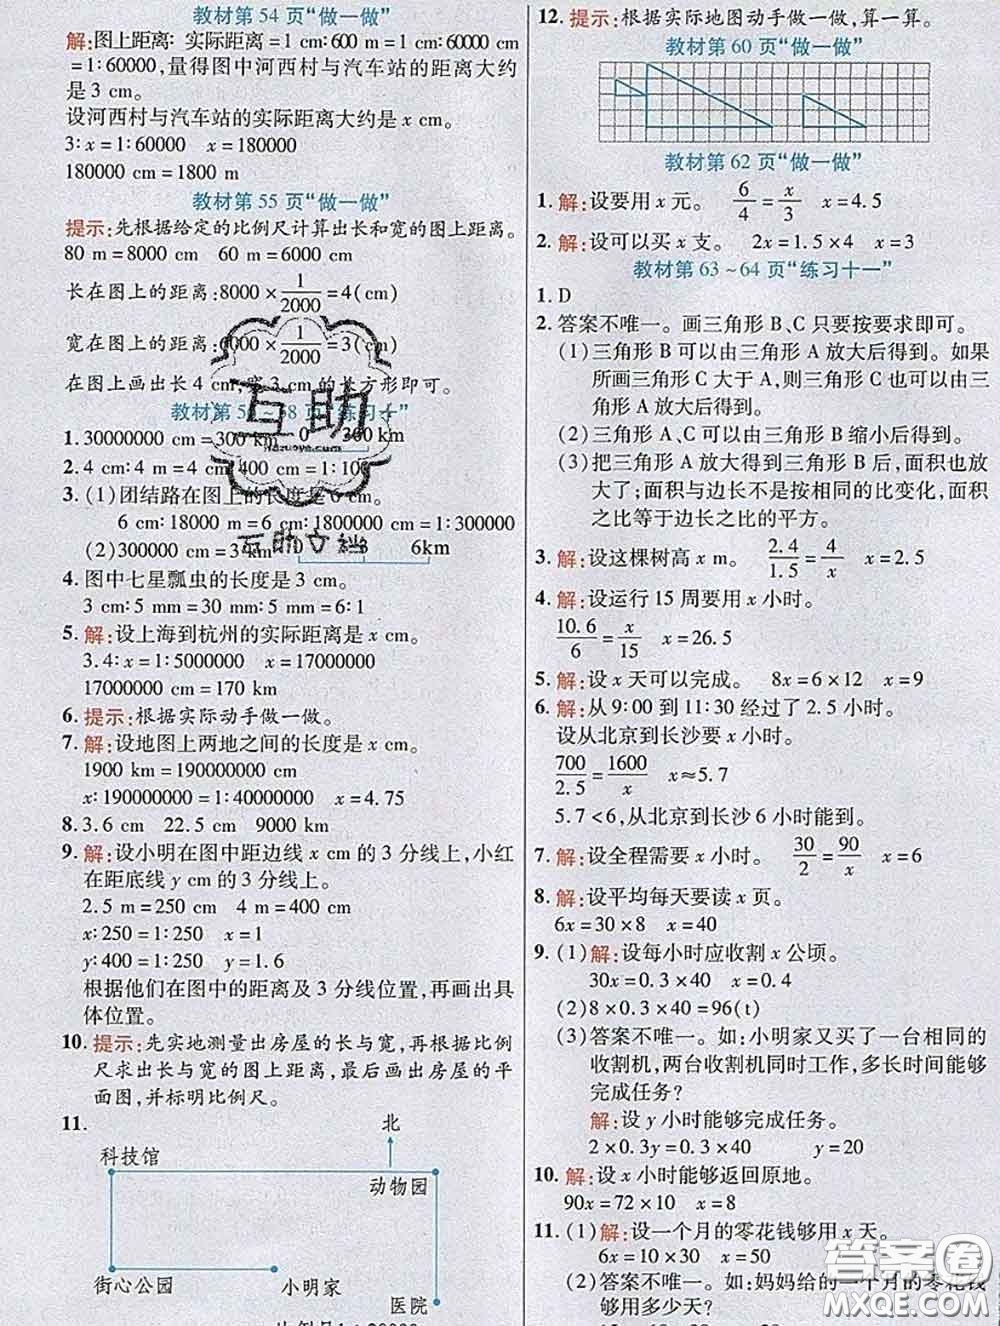 教材第 54 页“做一做”
解:图上距离: 实际距离=1 cm:600 m=1 cm:60000 cm
=1:60000,量得图中河西村与汽车站的距离大约
是 3 cm。
设河西村与汽车站的实际距离大约是 x cm。
3:x=1:60000 x=180000
180000 cm=1800 m
教材第 55 页“做一做”
提示:先根据给定的比例尺计算出长和宽的图上距离。
80 m=8000 cm 60 m=6000 cm
长在图上的距离:8000×1/2000=4(cm)
宽在图上的距离:6000×1/2000=3(cm)
在图上画出长 4 cm,宽 3 cm 的长方形即可。
教材第 56~58 页“练习十”
1.30000000 cm=300 km 0 300 km
2.4 cm:4 m=4 cm:400 cm=1:100
3.(1)团结路在图上的长度是 6 cm。
6 cm:18000 m=6 cm:1800000 cm=1:300000
(2)300000 cm=3 km 0 3 6km
4.图中七星瓢虫的长度是 3 cm。
3 cm:5 mm=30 mm:5 mm=6:1
5.解:设上海到杭州的实际距离是 x cm。
3.4:x=1:5000000 x=17000000
17000000 cm=170 km
6.提示:根据实际动手做一做。
7.解:设地图上两地之间的长度是 x cm。
1900 km=190000000 cm
x:190000000=1:40000000 x=4.75
8.3.6 cm 22.5 cm 9000 km
9.解:设小明在图中距边线 x cm 的 3 分线上,小红
在距底线 y cm 的 3 分线上。
2.5 m=250 cm 4 m=400 cm
x:250=1:250 x=1
y:400=1:250 y=1.6
根据他们在图中的距离及 3 分线位置,再画出具
体位置。
10.提示:先实地测量出房屋的长与宽,再根据比例
尺求出长与宽的图上距离,最后画出房屋的平
面图,并标明比例尺。
11.
北
科技馆
动物园
街心公园 小明家
医院
12.提示:根据实际地图动手做一做,算一算。
教材第 60 页“做一做”
教材第 62 页“做一做”
1.解:设要用 x 元。 6/4=x/3 x=4.5
2.解:设可以买 x 支。 2x=1.5×4 x=3
教材第 63~64 页“练习十一”
1.D
2.答案不唯一。画三角形 B、C 只要按要求即可。
(1)三角形 B 可以由三角形 A 放大后得到。如果
所画三角形 C 大于 A,则三角形 C 也可以由三
角形 A 放大后得到。
(2)三角形 A、C 可以由三角形 B 缩小后得到。
(3)把三角形 A 放大得到三角形 B 后,面积也放
大了;面积与边长不是按相同的比变化,面积
之比等于边长之比的平方。
3.解:设这棵树高 x m。 2.4/1.5=4/x x=2.5
4.解:设运行 15 周要用 x 小时。
10.6/6=x/15 x=26.5
5.解:设 x 天可以完成。 8x=6×12 x=9
6.解:从 9:00 到 11:30 经过了 2.5 小时。
设从北京到长沙要 x 小时。
700/2.5=1600/x x≈5.7
5.7<6,从北京到长沙 6 小时能到。
7.解:设全程需要 x 小时。 30/2=90/x x=6
8.解:设平均每天要读 x 页。
6x=30×8 x=40
9.(1)解:设每小时应收割 x 公顷。
30x=0.3×40 x=0.4
(2)8×0.3×40=96(t)
(3)答案不唯一。如:小明家又买了一台相同的
收割机,两台收割机同时工作,多长时间能够
完成任务?
解:设 y 小时能够完成任务。
2×0.3y=0.3×40 y=20
10.解:设 x 小时能够返回原地。
90x=72×10 x=8
11.(1)解:设一个月的零花钱够用 x 天。
6x=10×30 x=50
(2)答案不唯一。如:妈妈给的一个月的零花钱
够用多少天?
互助
互助文档
答案圈
MXQE.COM